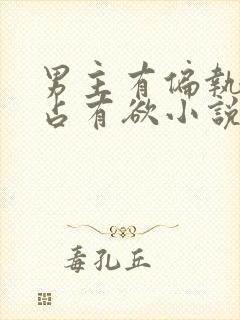 男主有偏執
占有欲小說
毒孔丘